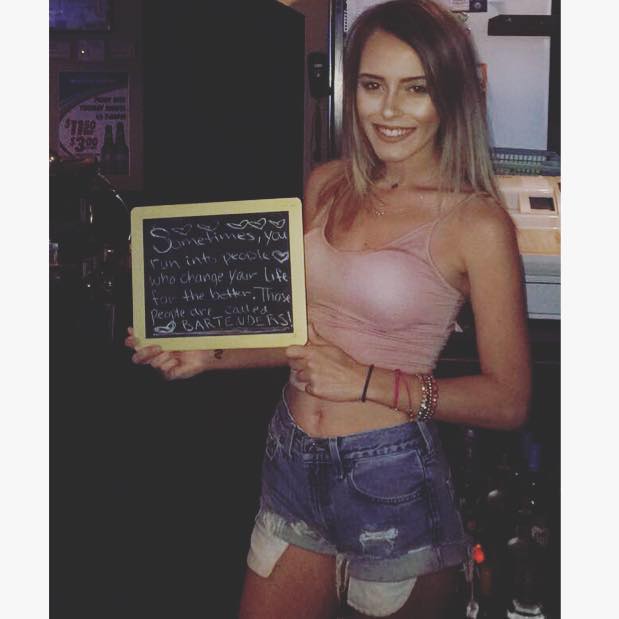 $11.50
$3.00
Sometimes, you
run into people
who change your life
for the better. Those
people are called
BARTENDERS!